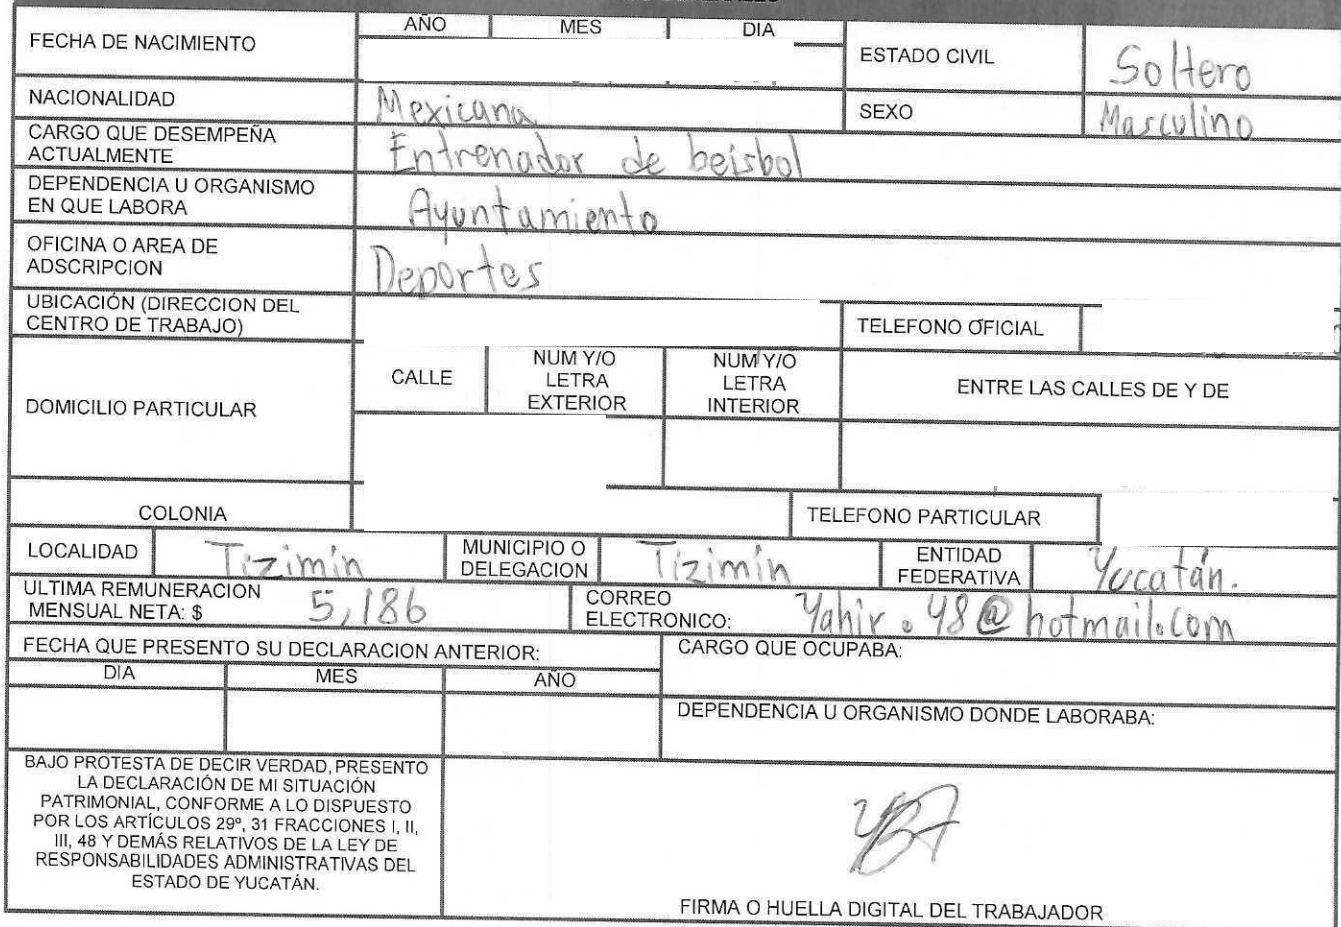 FECHA DE NACIMIENTO
AÑO MES DIA
ESTADO CIVIL Soltero
NACIONALIDAD Mexicana
SEXO Masculino
CARGO QUE DESEMPEÑA
ACTUALMENTE
Entrenador de beisbol
DEPENDENCIA U ORGANISMO
EN QUE LABORA
Ayuntamiento
OFICINA O AREA DE
ADSCRIPCION
Deportes
UBICACIÓN (DIRECCION DEL
CENTRO DE TRABAJO)
TELEFONO OFICIAL
DOMICILIO PARTICULAR
CALLE
NUM Y/O
LETRA
EXTERIOR
NUM Y/O
LETRA
INTERIOR
ENTRE LAS CALLES DE Y DE
COLONIA
TELEFONO PARTICULAR
LOCALIDAD Tizimín
MUNICIPIO O
DELEGACION
Tizimín
ENTIDAD
FEDERATIVA
Yucatán.
ULTIMA REMUNERACION
MENSUAL NETA: $ 5,186
CORREO
ELECTRONICO: Yahir.48@hotmail.com
FECHA QUE PRESENTO SU DECLARACION ANTERIOR:
DIA MES AÑO
CARGO QUE OCUPABA:
DEPENDENCIA U ORGANISMO DONDE LABORABA:
BAJO PROTESTA DE DECIR VERDAD, PRESENTO
LA DECLARACIÓN DE MI SITUACIÓN
PATRIMONIAL, CONFORME A LO DISPUESTO
POR LOS ARTÍCULOS 29º, 31 FRACCIONES I, II,
III, 48 Y DEMÁS RELATIVOS DE LA LEY DE
RESPONSABILIDADES ADMINISTRATIVAS DEL
ESTADO DE YUCATÁN.
FIRMA O HUELLA DIGITAL DEL TRABAJADOR